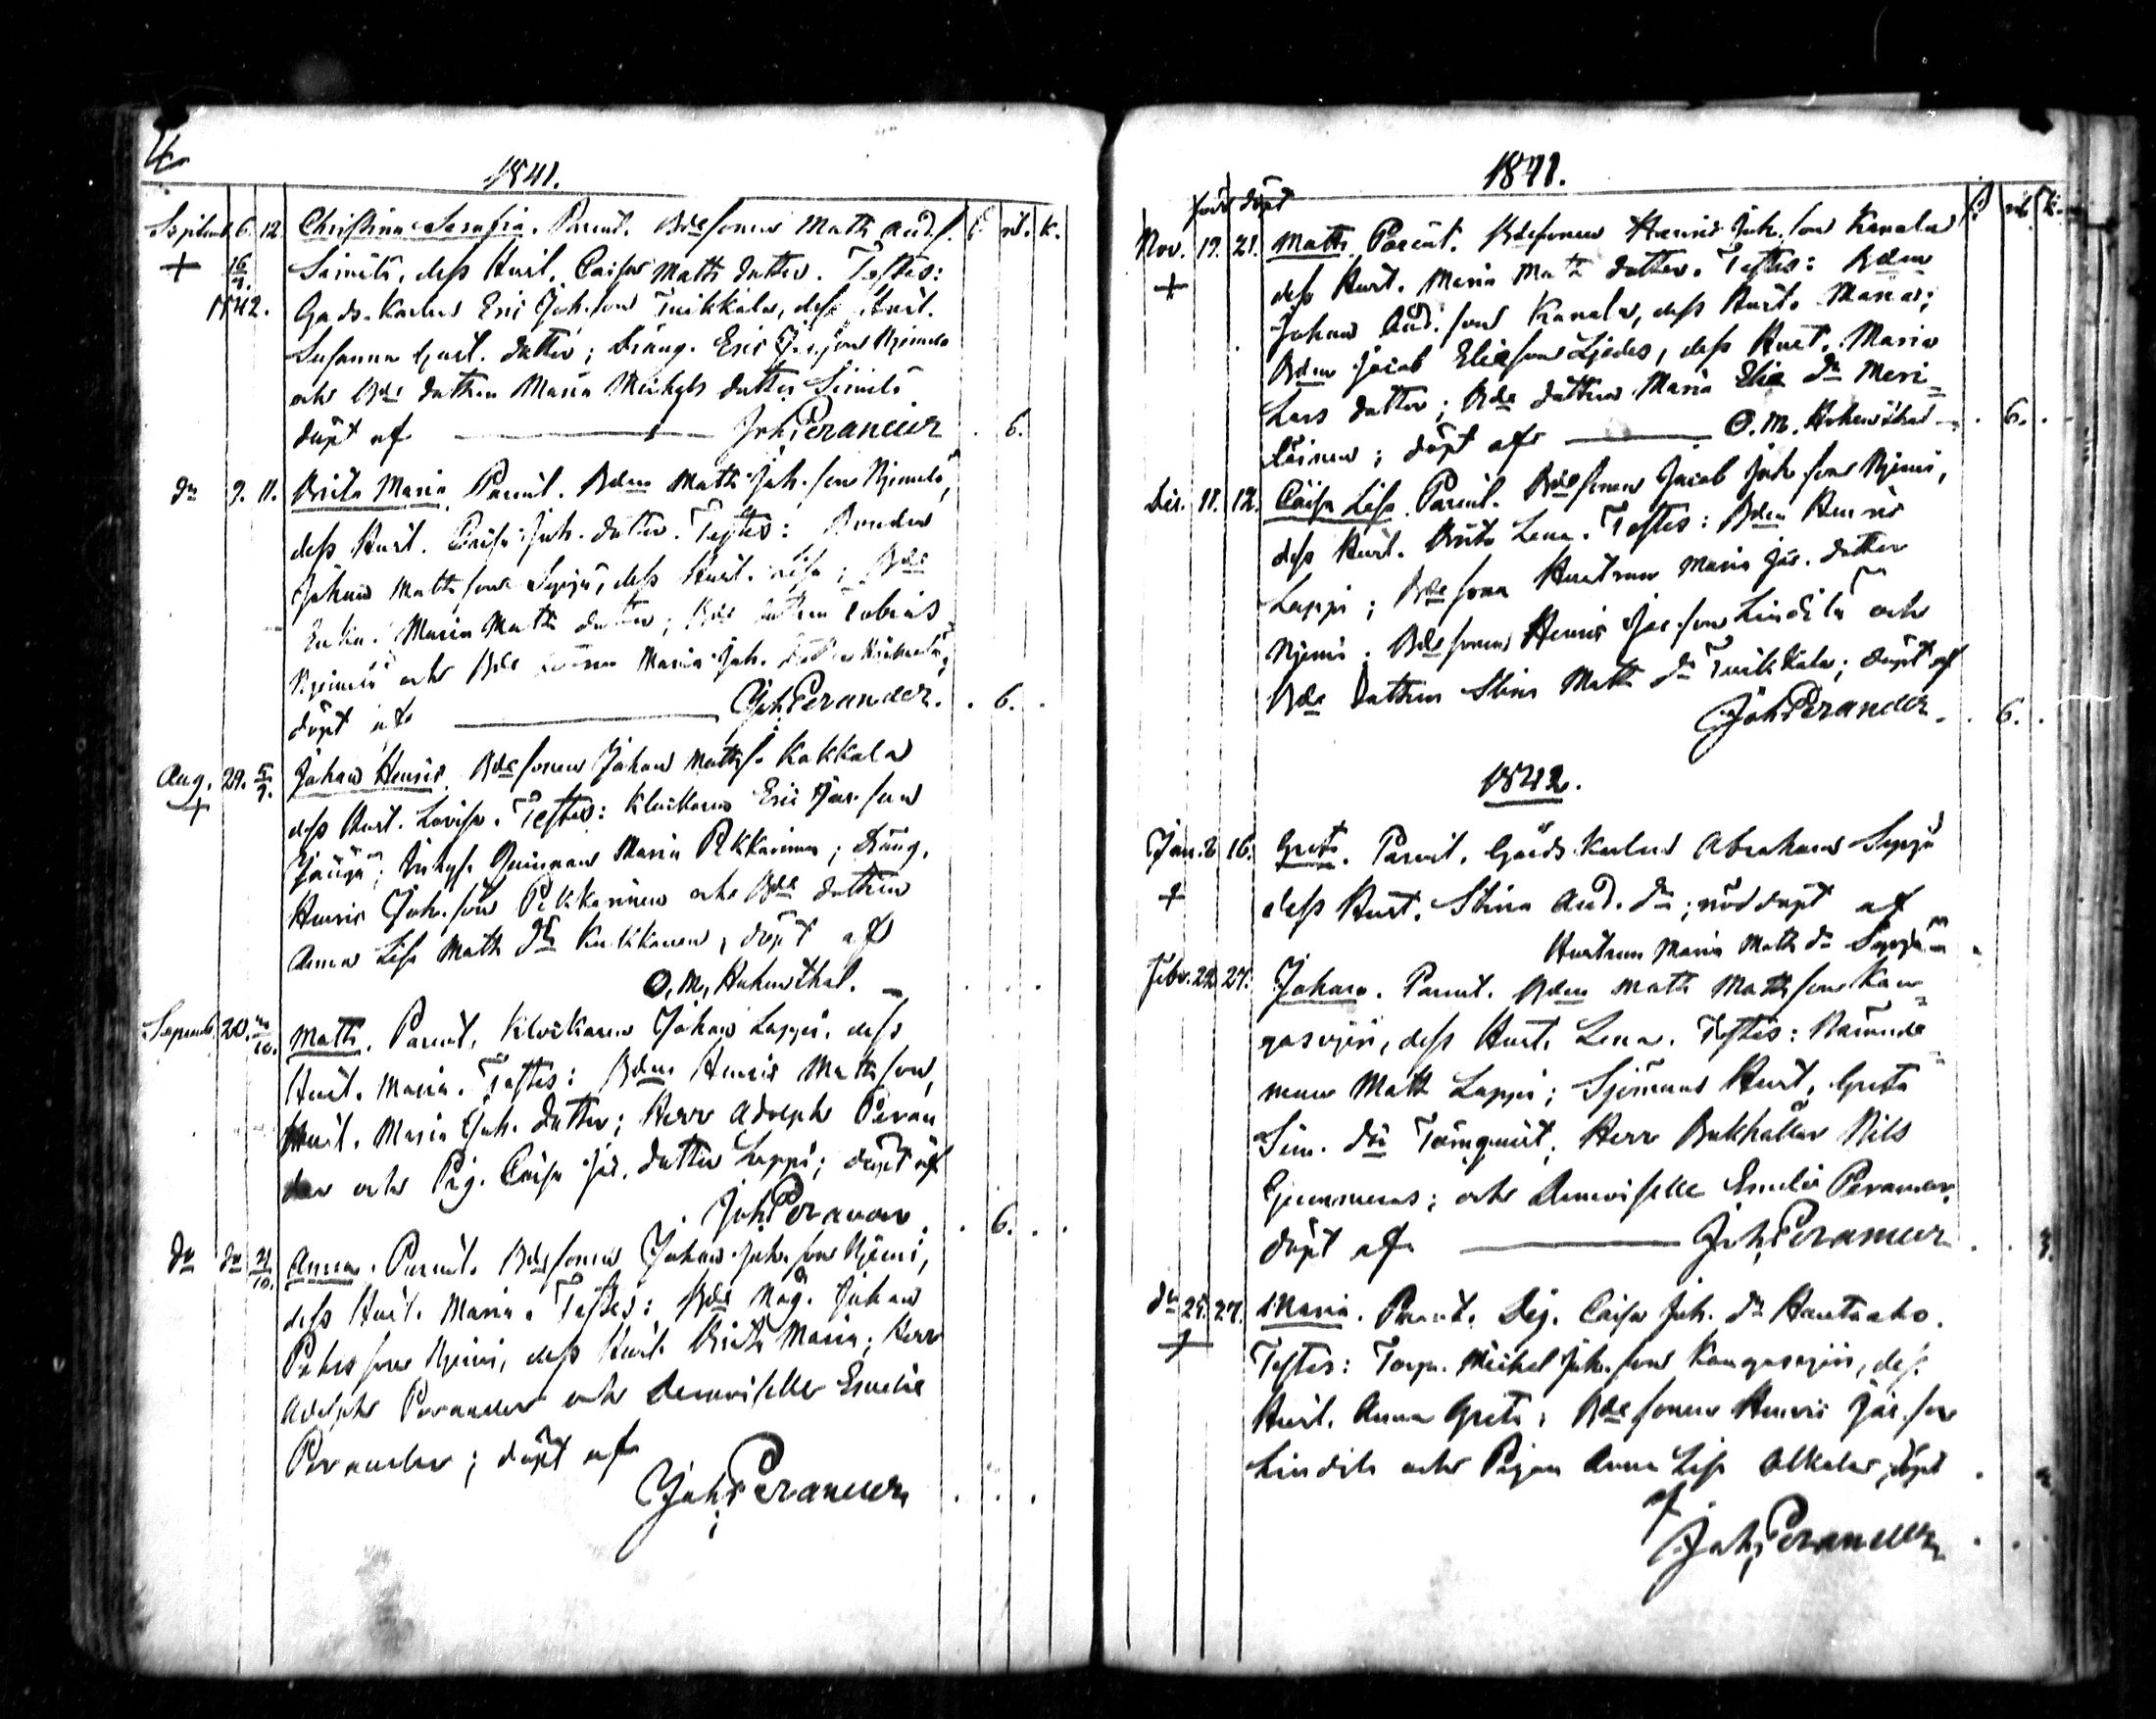 1841.
Septemb. 6. 12. Christina Serafia. Parent. Bdesonen Matts And.s. rub. k.
+ 16/9. Simila, dess Hust. Caisa Matts dotter. Testes:
1842. Gårds-Karlen Eric Joh.son Tuikkala, dess Hust.
Susanna Gust. dotter; Dräng. Eric Jac.son Njemelä
och Bde dottren Maria Michels dotter Simila
döpt af Joh. Perander . 6.
Dn 9. 11. Brita Maria. Parent. Bden Matts Joh.son Njemelä,
dess Hust. Caisa Joh. dotter. Testes: Bonden
Johan Matts son Seppä, dess Hust. Lisa; Bde
Enkan Maria Matts dotter; Bde dottren Tobias
Njemelä och Bde Maria Joh. dotter
döpt af Joh. Perander. . 6. .
Aug. 29. 5/9. Johan Henric Bde sonen Johan Matts s. Kakkala
+ dess Hust. Lovisa. Testes: Klockaren Eric Jac. son
Maria Pekkarinen; Dräng.
Henric Joh. son Pekkarinen och Bde dottren
Anna Lisa Matts dr Kukkonen, döpt af
O. M. Hohenthal.
Septemb. 20. /10. Matts. Parent. Klockaren Johan Lappi, dess
Hust. Maria. Testes: Bden Henric Matts son,
Hust. Maria Joh. dotter; Herr Adolph Peran
der och Pig. Caisa Jac. dotter Lappi; döpt af
Joh. Perander . 6. .
Dn Dn 21/10. Anna. Parent. Bdesonen Johan Joh. son Njemi,
dess Hust. Maria. Testes: Bde Måg. Johan
Petersson Njemi, dess Hust. Brita Maria; Herr
Adolph Perander och Demoiselle Emelie
Perander; döpt af
Joh. Perander
1841.
född döpt
Nov. 19. 21. Matts. Parent. Bdesonen Henric Joh. son Kanala
+ dess Hust. Maria Matts dotter. Testes: Bden
Johan And. son Kanala, dess Hust. Maria;
Bden Jacob Eliesson Ljedes, dess Hust. Maria
Lars dotter; Bde dottren Maria Elie dr Meri-
läinen; döpt af O. M. Hohenthal . 6. .
Dec. 11. 12. Caisa Lisa. Parent. Bdesonen Jacob Joh son Njemi,
dess Hust. Brita Lena. Testes: Bden Henric
Lappi; Bdesons Hustrun Maria Jac. dotter
Njemi. Bdesonen Henric Jac.son Lindila och
Bde dottren Stina Matts dr Tuikkala; döpt af
Joh. Perander . 6. .
1842.
Jan. 8 16. Greta. Parent. Gårds Karlen Abraham Seppä
+ dess Hust. Stina And. dr; nöddöpt af
Hustrun Maria Matts dr Seppä
Febr. 22. 27. Johan. Parent. Bden Matts Matts son Kan-
gasvjeri, dess Hust. Lena. Testes: Nämnde-
man Matts Lappi; Sjömans Hust. Greta
Sim. dr Törnquist; Herr Bokhållar Nils
och Demoiselle Emelie Perander,
döpt af Joh. Perander . . 3.
Dn 25. 27. Maria. Parent. Pig. Caisa Joh. dr Hautaaho.
+ Testes: Torp. Michel Joh. son Kangasvjeri, dess
Hust. Anna Greta; Bdesonen Henric Jac. son
Lindila och Pigan Anna Lisa Alkala, döpt
af
Joh. Perander